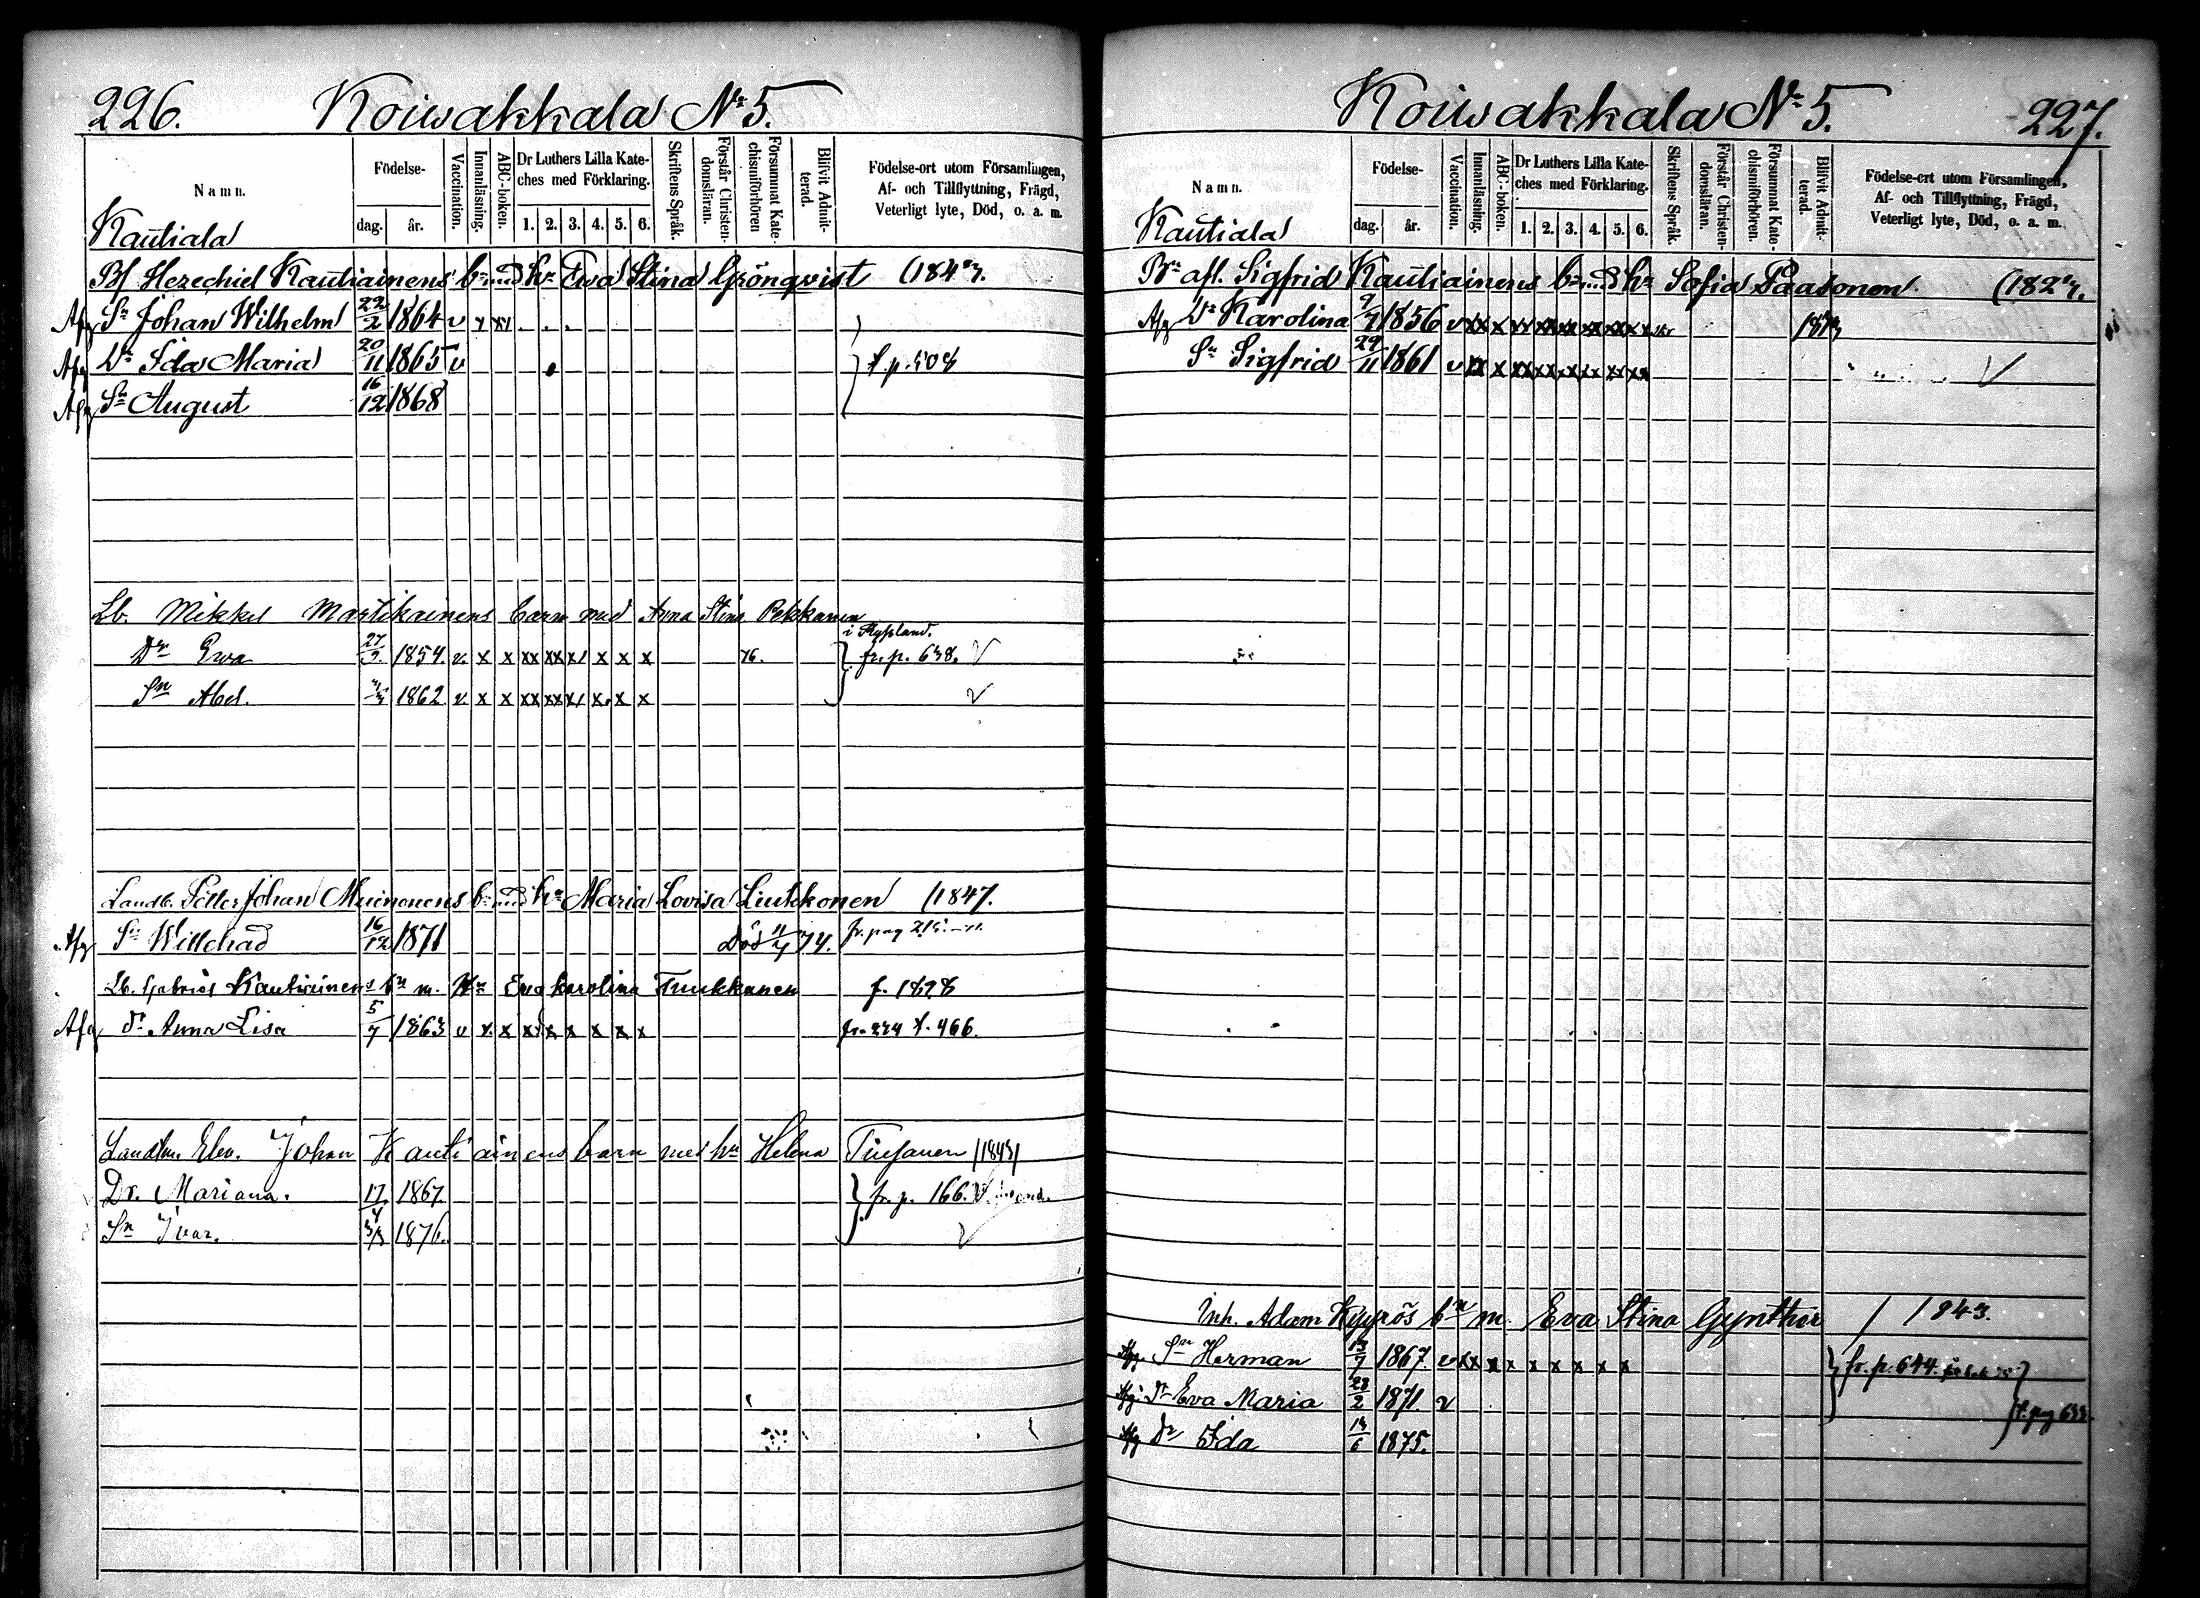 226. Koiwakkala № 5.
Namn.
Födelse-
dag. år.
Vaccination.
Innanläsning.
ABC-boken.
Dr Luthers Lilla Kate-
ches med Förklaring.
1. 2. 3. 4. 5. 6.
Skriftens Språk.
Förstår Christen-
domsläran.
Försummat Kate-
chismiförhören
Blifvit Admit-
terad.
Födelse-ort utom Församlingen,
Af- och Tillflyttning, Frägd,
Veterligt lyte, Död, o. a. m.
Kautiala
Hezechiel Kautiainens bn med hu Ewa Stina Grönqvist (1843.
Afg Sn Johan Wilhelm 22/2 1864 v
Afg Dr Ida Maria 20/11 1865 v
Afg Sn August 16/12 1868
Lb. Mikkel Martikainens barn med Anna Stina Pekkanen
i Ryssland.
Dr Ewa 27/9. 1854. v. x x xx xx x/ x x x 76. fr. p. 638. V
Sn Abel. 1862 v. x x xx xx x/ x. x x V
Landb. Petter Johan Muinonens bn med hu Maria Lovisa Liukkonen (1847.
Afg Sn Willehad 16/12 1871 Död 11/4 74. fr. pag
Lb. Gabriel Kautiainens bn m. Hu Eva Karolina Tuukkanen f. 1828
Afg dr Anna Lisa 5/7 1863 v x x x x x x x x fr. 224 t. 466.
Landbn. Elev. Johan Kautiainens barn med hu Helena Tiusanen /1843/
Dr. Mariana. 17/4 1867. fr. p. 166. V
Sn Ivar. 3/8 1876. V
Koiwakkala № 5. 227.
Namn.
Födelse-
dag. år.
Vaccination.
Innanläsning.
ABC-boken.
Dr Luthers Lilla Kate-
ches med Förklaring.
1. 2. 3. 4. 5. 6.
Skriftens Språk.
Förstår Christen-
domsläran.
Försummat Kate-
chismiförhören.
Blifvit Admit-
terad.
Födelse-ort utom Församlingen,
Af- och Tillflyttning, Frägd,
Veterligt lyte, Död, o. a. m.
Kautiala
Bn afl. Sigfrid Kautiainens bn med hu Sofia Paasonen (1827.
Afg Dr Karolina 9/7 1856 v xx x xx xx xx xx xx xx
Sn Sigfrid 29/11 1861 v xx x xx xx xx xx xx xx V
Inh. Adam Kyyrös bn m. Eva Stina Gynther / 1843.
Afg. Sn Herman 13/7 1867. v xx x x x x x x x fr. p. 644.
Afg. Dr Eva Maria 28/2 1871 v
Afg Dr Ida 13/6 1875.